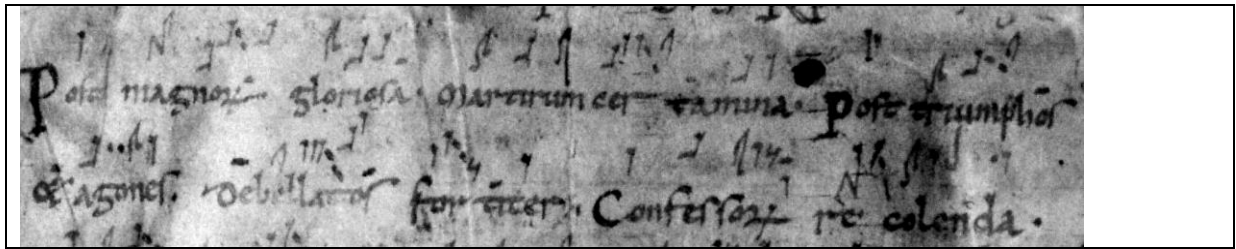 Post magnorꝝ gloriosa· Martirum cer tamina· Post triumphos
& agones. Debellatos fortiter· Confessorꝝ re colenda·